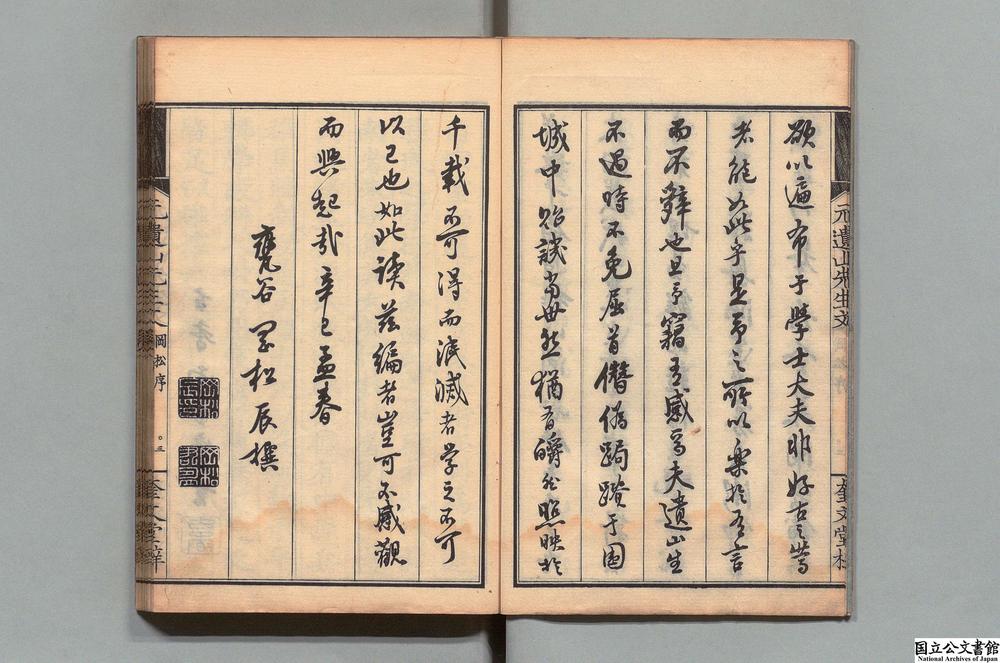 欲以遍布于學士大夫非好古之篤
者能如此乎是予之所以樂於有言
而不辭也且予竊有感焉夫遺山生
不遇時不免屈首僭偽跼蹐于圍
城中貽譏當世然猶有皭然照映於
千載不可得而泯滅者学之不可
以已也如此讀茲編者豈可不感觀
而興起哉辛巳孟春
甕谷 岡松辰撰
元遺山先生文
奎文堂梓
岡松序
〇三
国立公文書館
National Archives of Japan